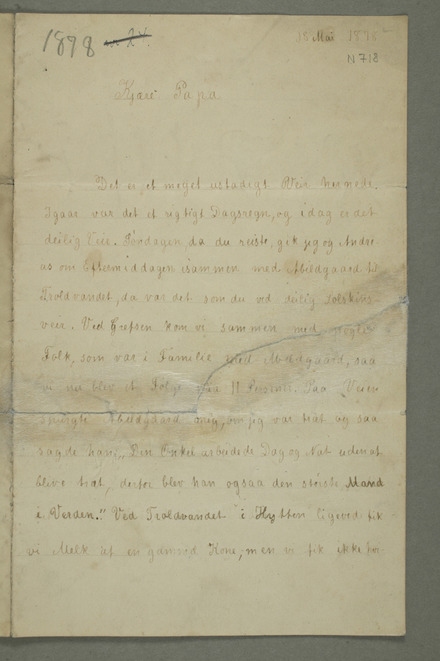 1898
15 Mai 1898
N 718
Kjære Papa
Det er et meget ustadigt Veir hernede.
Igaar var det et rigtigt Dagsregn, og idag er det
deilig Veir. Torsdagen, da du reiste, gik jeg og Andre-
as om Eftermiddagen isammen med Abildgaard til
Troldvandet, da var det som du ved deilig Solskins-
veir. Ved Grefsen kom vi sammen med nogle
Folk, som var i Familie med Abildgaard, saa
vi nu blev et Følge paa 11 Personer. Paa Veien
spurgte Abildgaard mig, om jeg var træt og saa
sagde han: "Din Onkel arbeidede Dag og Nat uden at
blive træt, derfor blev han ogsaa den største Mand
i Verden." Ved Troldvandet i Hytten ligeved fik
vi Melk af en gammel Kone, men vi fik ikke